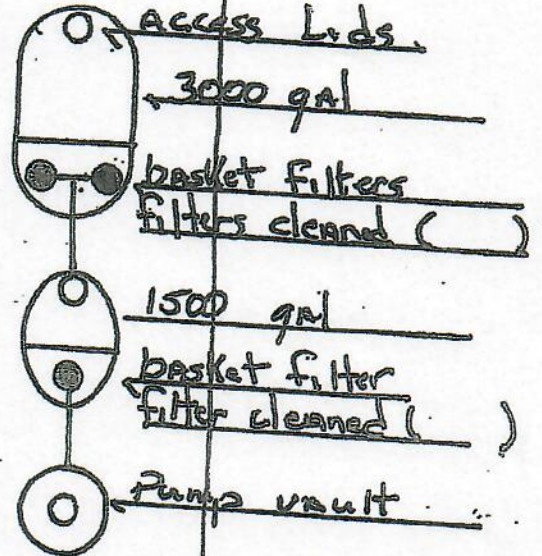 Access Lids
3000 gal
basket filters
filters cleaned ( )
1500 gal
basket filter
filter cleaned ( )
Pump vault